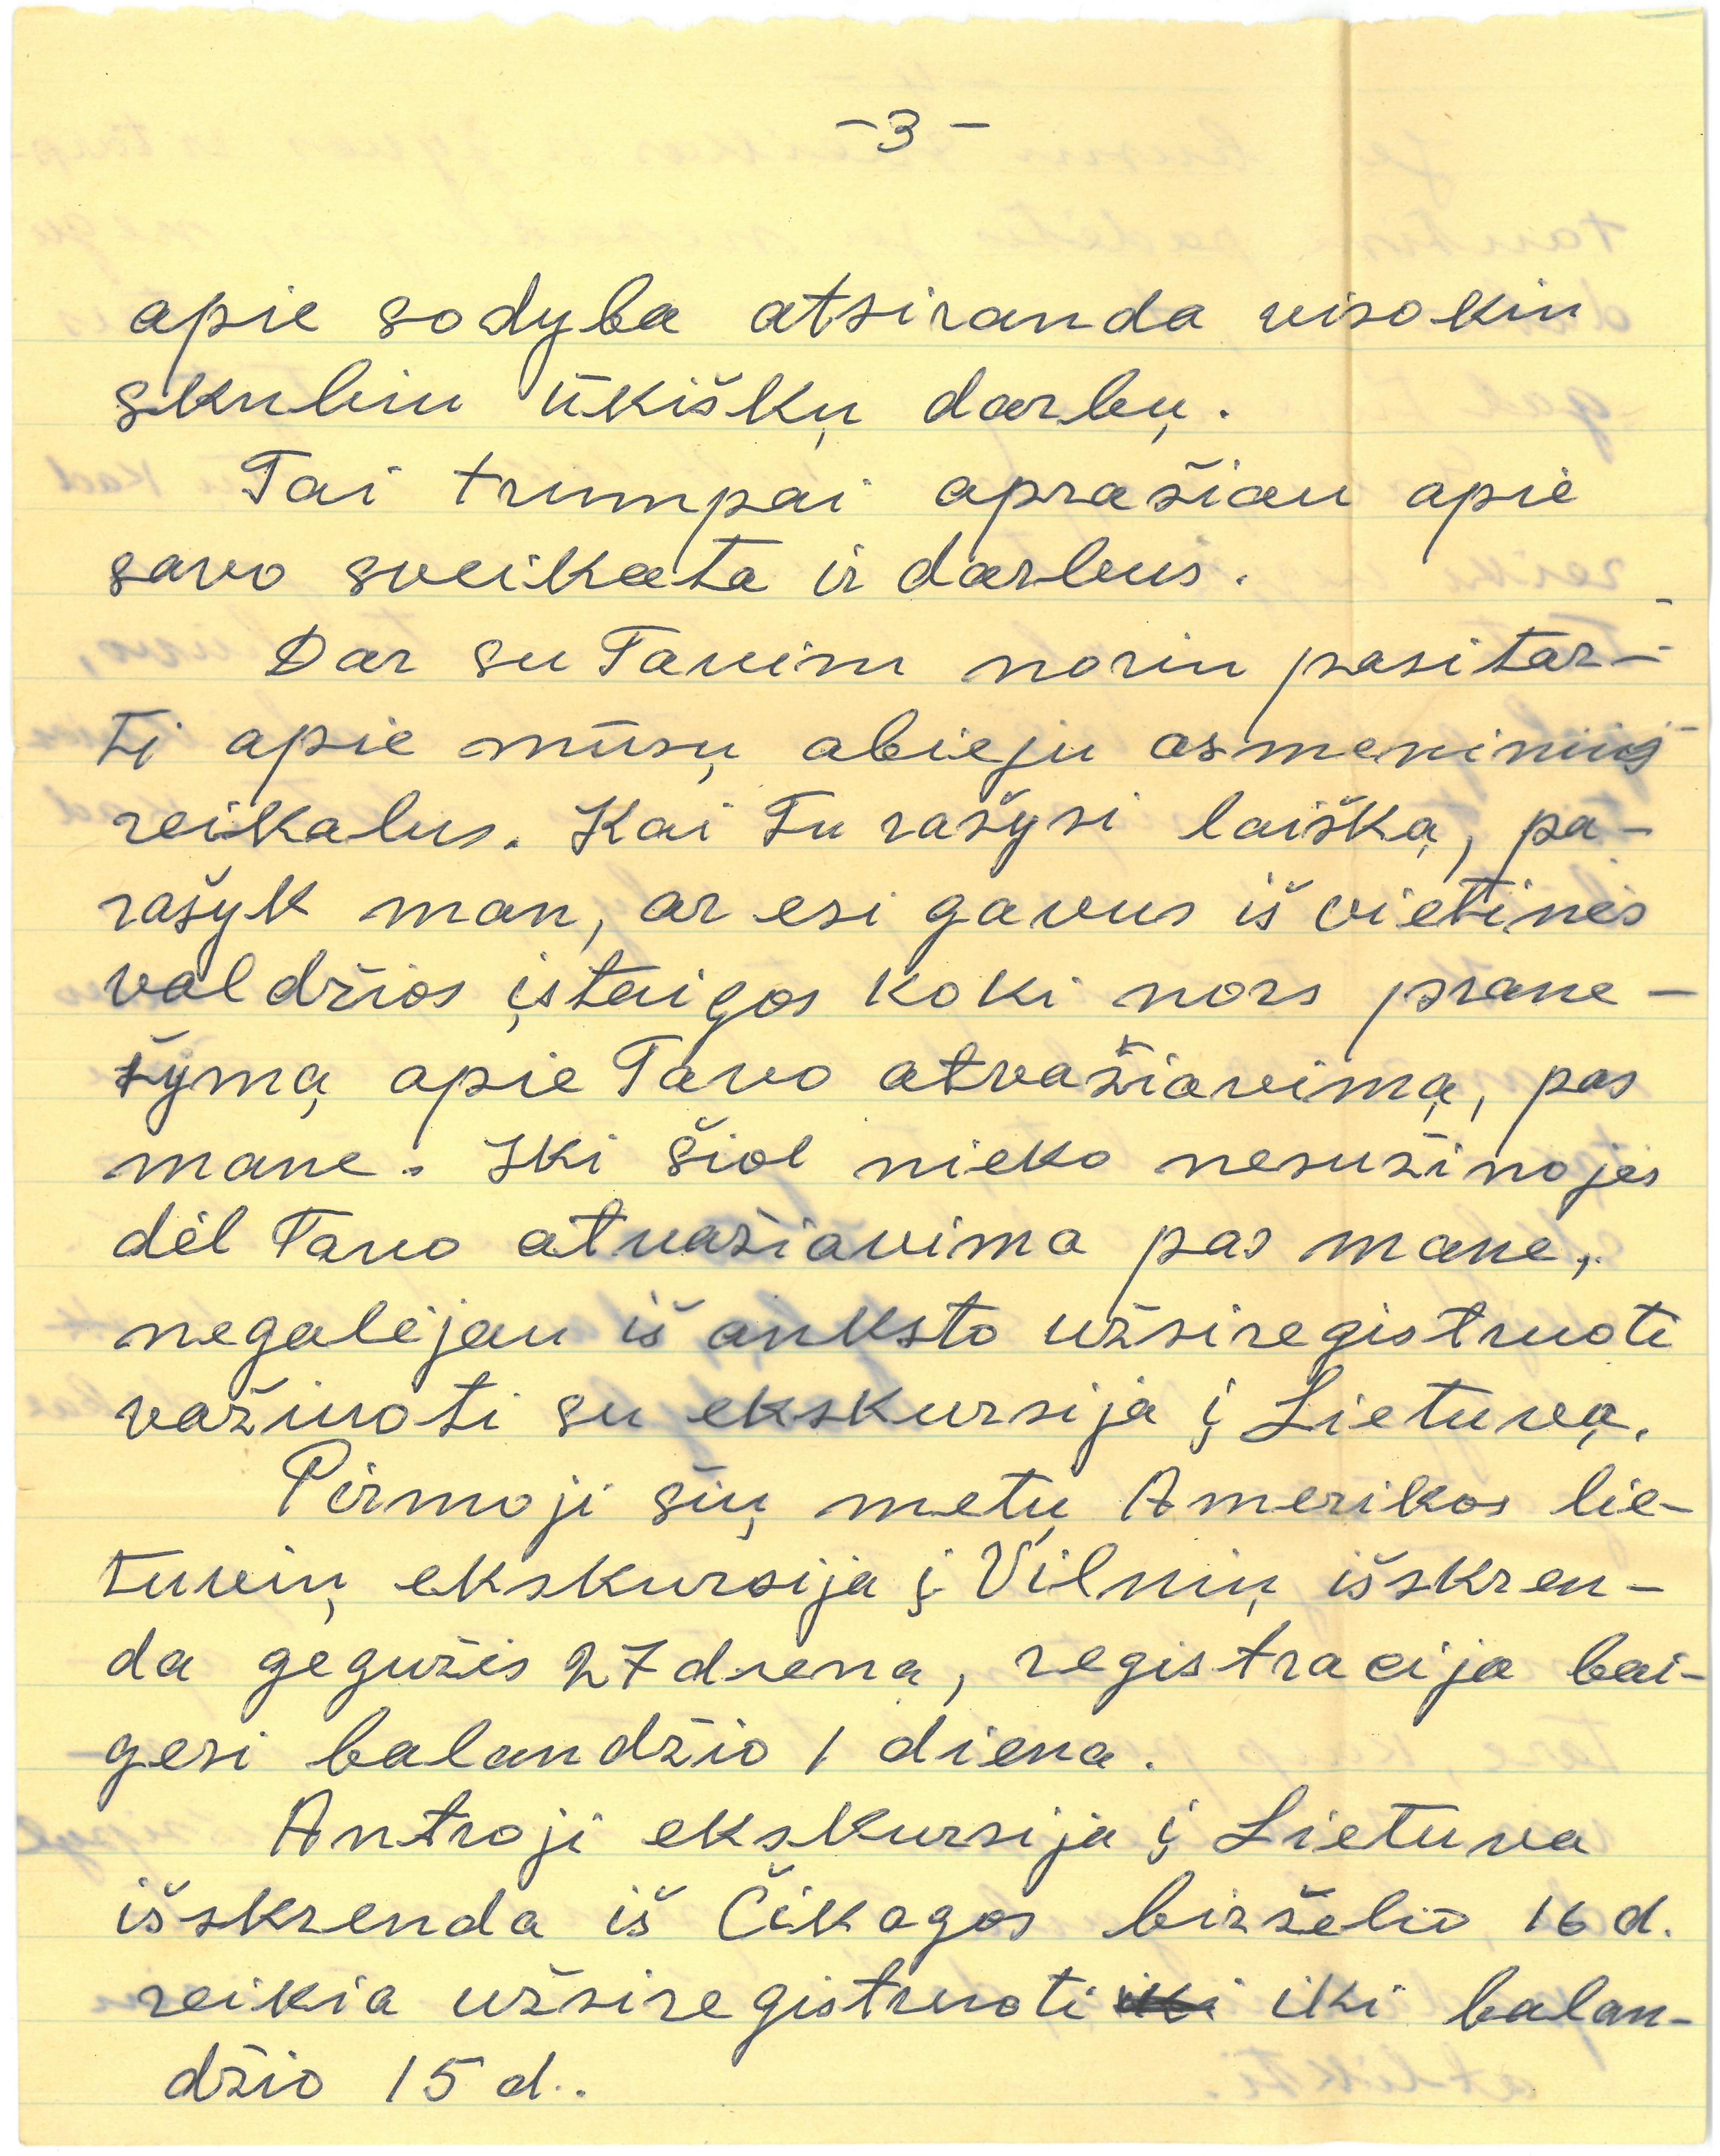 -3-
apie sodyba atsiranda visokiu
skubiu ūkiškų darbų.
Tai trumpai aprašiau apie
savo sveikata ir darbus.
Dar su Tavim noriu pasitar-
ti apie mūsų abieju asmeninius
reikalus. Kai Tu rašysi laišką, pa-
rašyk man, ar esi gavus iš vietinės
valdžios įstaigos koki nors prane-
šymą apie Tavo atvažiavimą, pas
mane. Iki šiol nieko nesužinojęs
dėl Tavo atvažiavimo pas mane,
negalėjau iš anksto užsiregistruoti
važiuoti su ekskursija į Lietuvą.
Pirmoji šių metų Amerikos lie-
tuvių ekskursija į Vilnių išskren-
da gegužės 27 diena, registracija bai-
gesi balandžio 1 diena.
Antroji ekskursija į Lietuva
išskrenda iš Čikagos birželio 16 d.
reikia užsiregistruoti iki iki balan-
džio 15 d..